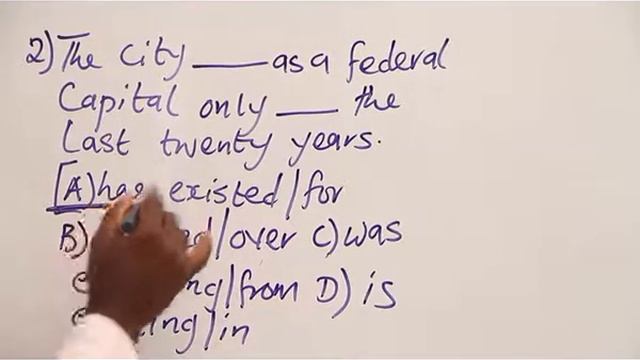 2) The city ____ as a federal
Capital only ____ the
Last twenty years.
[A) has existed/for
B) /over C) was
/from D) is
/in